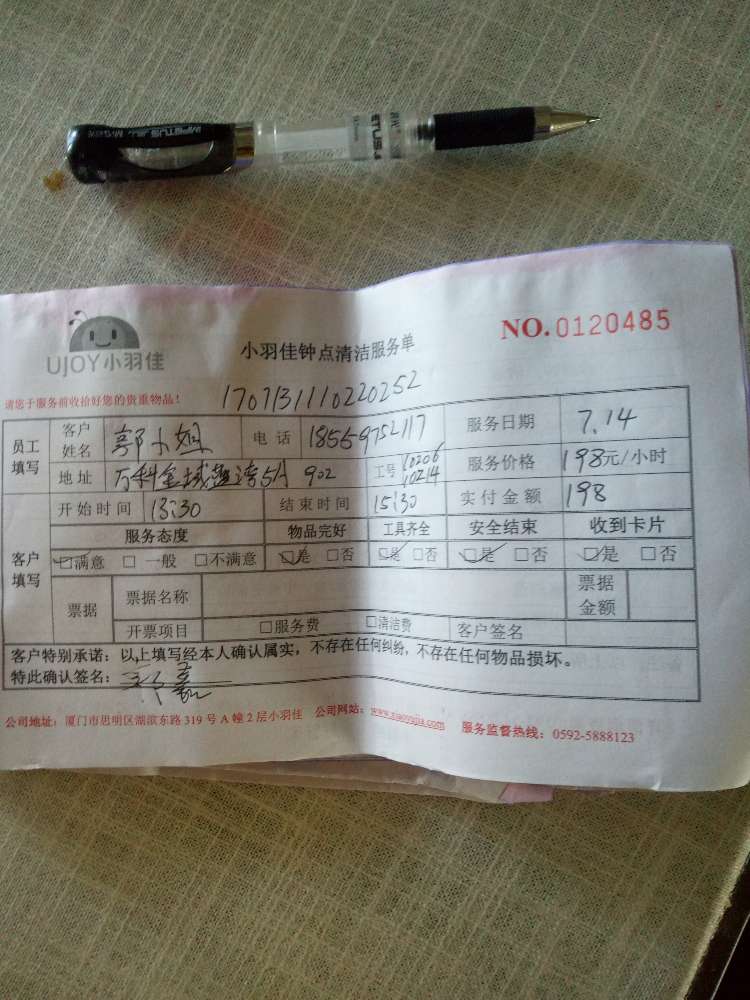 IMPETUS JEL M&G
ETUS J
NO.0120485
UJOY小羽佳
小羽佳钟点清洁服务单
请您于服务前收拾好您的贵重物品！
1707131110220252
员工填写 客户姓名 郭小姐 电话 18559752117 服务日期 7.14
地址 万科金域 5A 902 工号 10206 10214 服务价格 198元/小时
开始时间 13:30 结束时间 15:30 实付金额 198
客户填写 服务态度 物品完好 工具齐全 安全结束 收到卡片
☑满意 □一般 □不满意 ☑是 □否 ☑是 □否 ☑是 □否 ☑是 □否
票据 票据名称 票据金额
开票项目 □服务费 □清洁费 客户签名
客户特别承诺：以上填写经本人确认属实，不存在任何纠纷，不存在任何物品损坏。
特此确认签名：
公司地址：厦门市思明区湖滨东路 319 号 A 幢 2 层小羽佳 公司网站：www.xiaoyujia.com 服务监督热线：0592-5888123